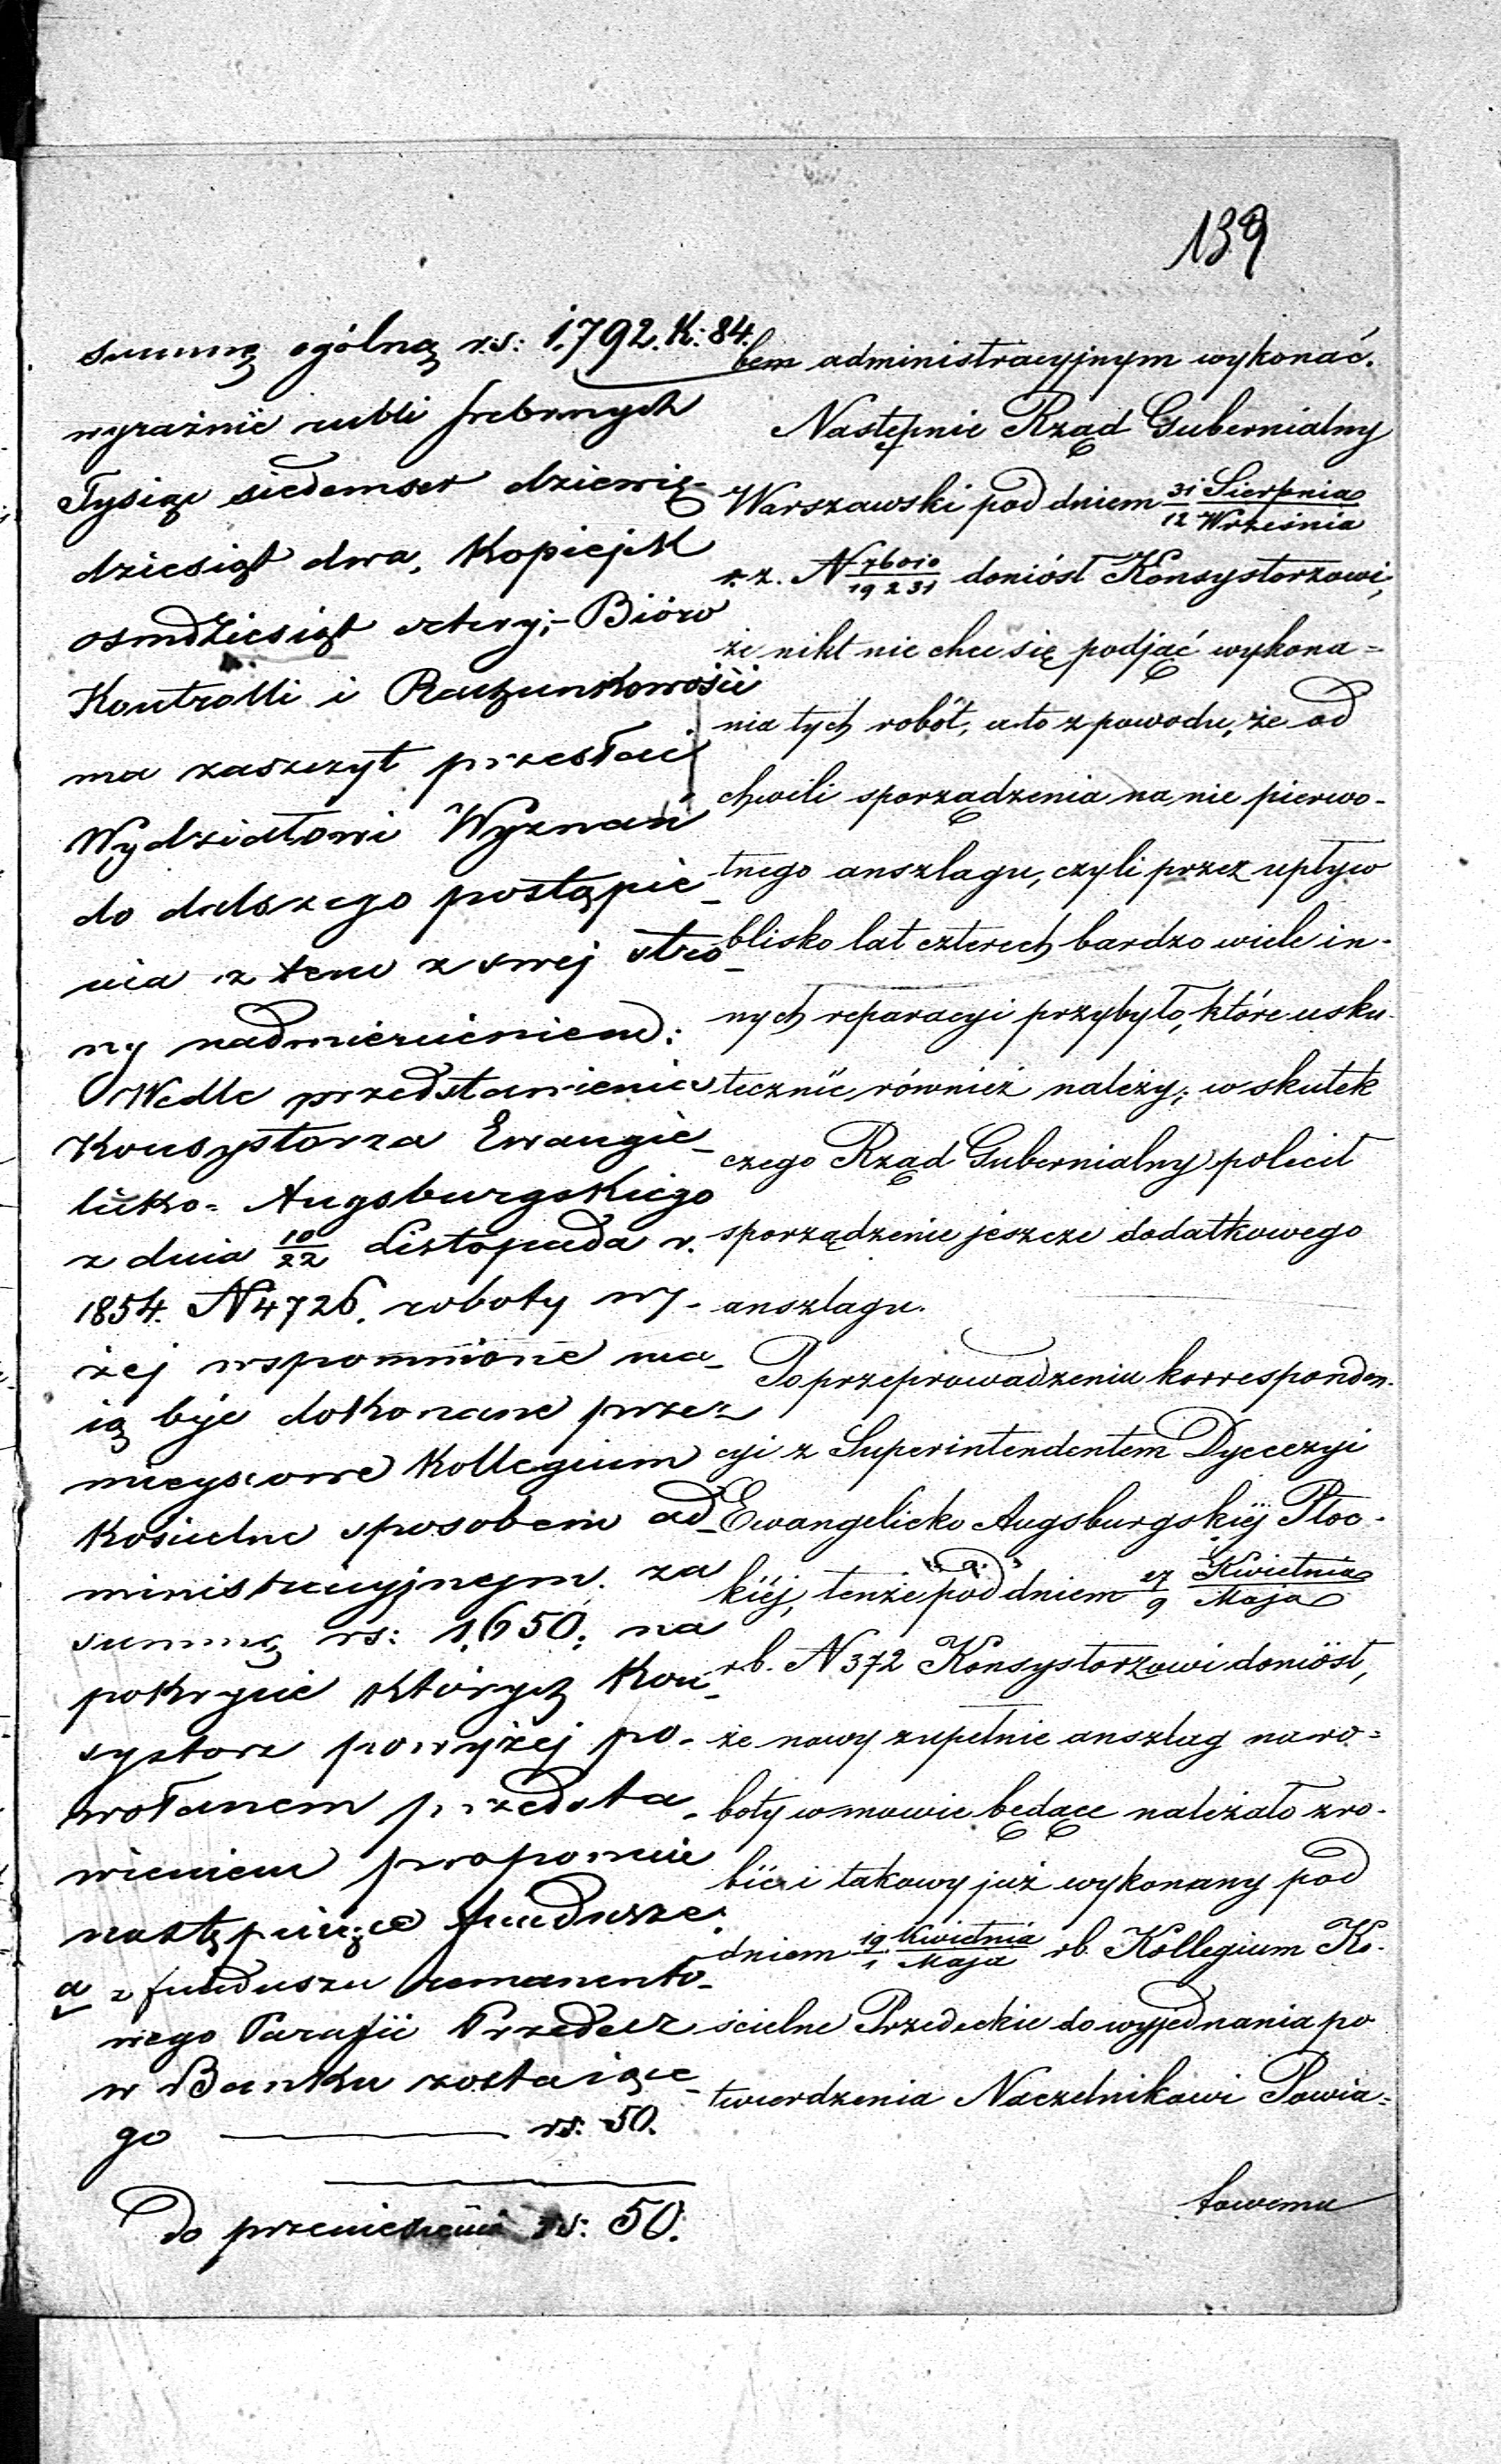 139
summę ogólną rs: 1,792. K: 84.
wyraźnie rubli srebrnych
Tysiąc siedemset dziewię-
dziesiąt dwa, Kopiejk
osmdziesiąt cztery;- Bióro
Kontrolli i Rachunkowości
ma zaszczyt przesłać
Wydziałowi Wyznań
do dalszego postąpie-
nia z tem z swej stro-
ny nadmienieniem:
Wedle przedstawienia
Konsystorza Ewangie-
licko= Augsburgskiego
z dnia 10/22 Listopada r.
1854. N 4726. roboty wy-
żej wspomnione ma-
ią być dokonane przez
mieyscowe Kollegium
Kościelne sposobem ad-
ministracyjnym. za
summę rs: 1,650; na
pokrycie których Kon-
systorz powyżej po-
wołanem przedsta-
wieniem proponuie
następuiące fundusze:
a z funduszu remanento-
wego Parafii Przedecz
w Banku zostaiące-
go rs: 50.
Do przeniesienia rs: 50.
bem administracyjnym wykonać.
Następnie Rząd Gubernialny
Warszawski pod dniem 31 Sierpnia/12 Września
r. z. N 76010/19231 doniósł Konsystorzowi,
że nikt nie chce się podjąć wykona=
nia tych robót, a to z powodu, że od
chwili sporządzenia na nie pierwo-
tnego anszlagu, czyli przez upływ
blisko lat czterech bardzo wiele in-
nych reparacyi przybyło, które usku-
tecznić również należy; w skutek
czego Rząd Gubernialny polecił
sporządzenie jeszcze dodatkowego
anszlagu.
Po przeprowadzeniu korresponden-
cyi z Superintendentem Dyecezyi
Ewangelicko Augsburgskiéj Płoc-
kiéj, tenże pod dniem 27 Kwietnia/9 Maja
r b. N 372 Konsystorzowi doniósł,
że nowy zupełnie anszlag na ro=
boty w mowie będące należało zro-
bić i takowy już wykonany pod
dniem 19 Kwietnia/1 Maja rb. Kollegium Ko-
ścielne Przedeckie do wyjednania po
twierdzenia Naczelnikowi Powia=
towemu